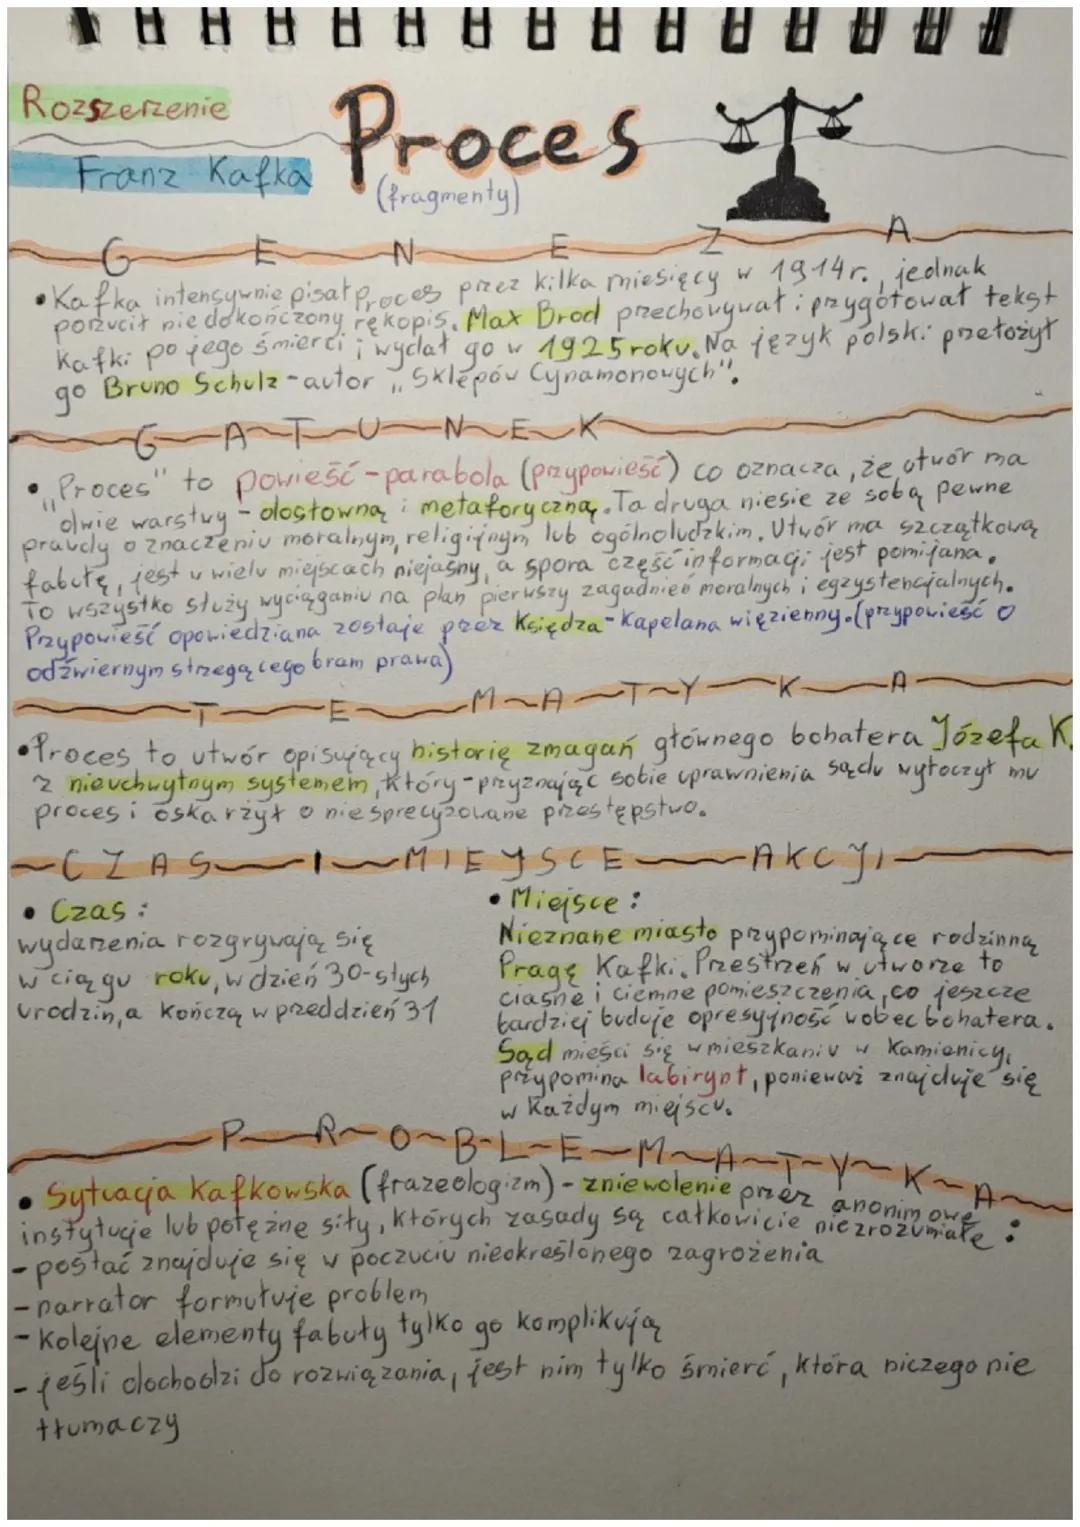 Rozszerzenie
Franz Kafka
Proces
(fragmenty)
GENEZA
• Kafka intensywnie pisał Proces przez kilka miesięcy w 1914r., jednak
porzucił niedokończony rękopis. Max Brod przechowywał i przygotował tekst
Kafki po jego śmierci i wydał go w 1925 roku. Na język polski przełożył
go Bruno Schulz - autor „Sklepów Cynamonowych".
GATUNEK
• „Proces" to powieść - parabola (przypowieść) co oznacza, że utwór ma
dwie warstwy - dosłowną i metaforyczną. Ta druga niesie ze sobą pewne
prawdy o znaczeniu moralnym, religijnym lub ogólnoludzkim. Utwór ma szczątkową
fabułę, jest w wielu miejscach niejasny, a spora część informacji jest pomijana.
To wszystko służy wyciąganiu na plan pierwszy zagadnień moralnych i egzystencjalnych.
Przypowieść opowiedziana zostaje przez Księdza - Kapelana więzienny. (przypowieść o
odźwiernym strzegącego bram prawa)
TEMATYKA
• Proces to utwór opisujący historię zmagań głównego bohatera Józefa K.
z nieuchwytnym systemem, który - przyznając sobie uprawnienia sądu wytoczył mu
proces i oskarżył o niesprecyzowane przestępstwo.
CZAS I MIEJSCE AKCJI
• Czas:
wydarzenia rozgrywają się
w ciągu roku, w dzień 30-stych
urodzin, a kończą w przeddzień 31
• Miejsce:
Nieznane miasto przypominające rodzinną
Pragę Kafki. Przestrzeń w utworze to
ciasne i ciemne pomieszczenia, co jeszcze
bardziej buduje opresyjność wobec bohatera.
Sąd mieści się w mieszkaniu w kamienicy,
przypomina labirynt, ponieważ znajduje się
w każdym miejscu.
PROBLEMATYKA
• Sytuacja Kafkowska (frazeologizm) - zniewolenie przez anonimowe
instytucje lub potężne siły, których zasady są całkowicie niezrozumiałe:
- postać znajduje się w poczuciu nieokreślonego zagrożenia
- narrator formułuje problem
- kolejne elementy fabuły tylko go komplikują
- jeśli dochodzi do rozwiązania, jest nim tylko śmierć, która niczego nie
tłumaczy